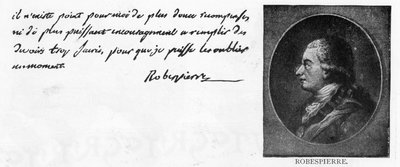 il n'existe point pour moi de plus douce récompense,
ni de plus puissant encouragement a remplir des
devoirs trop sacrés, pour que je puisse les oublier
un moment.
Robespierre
ROBESPIERRE.